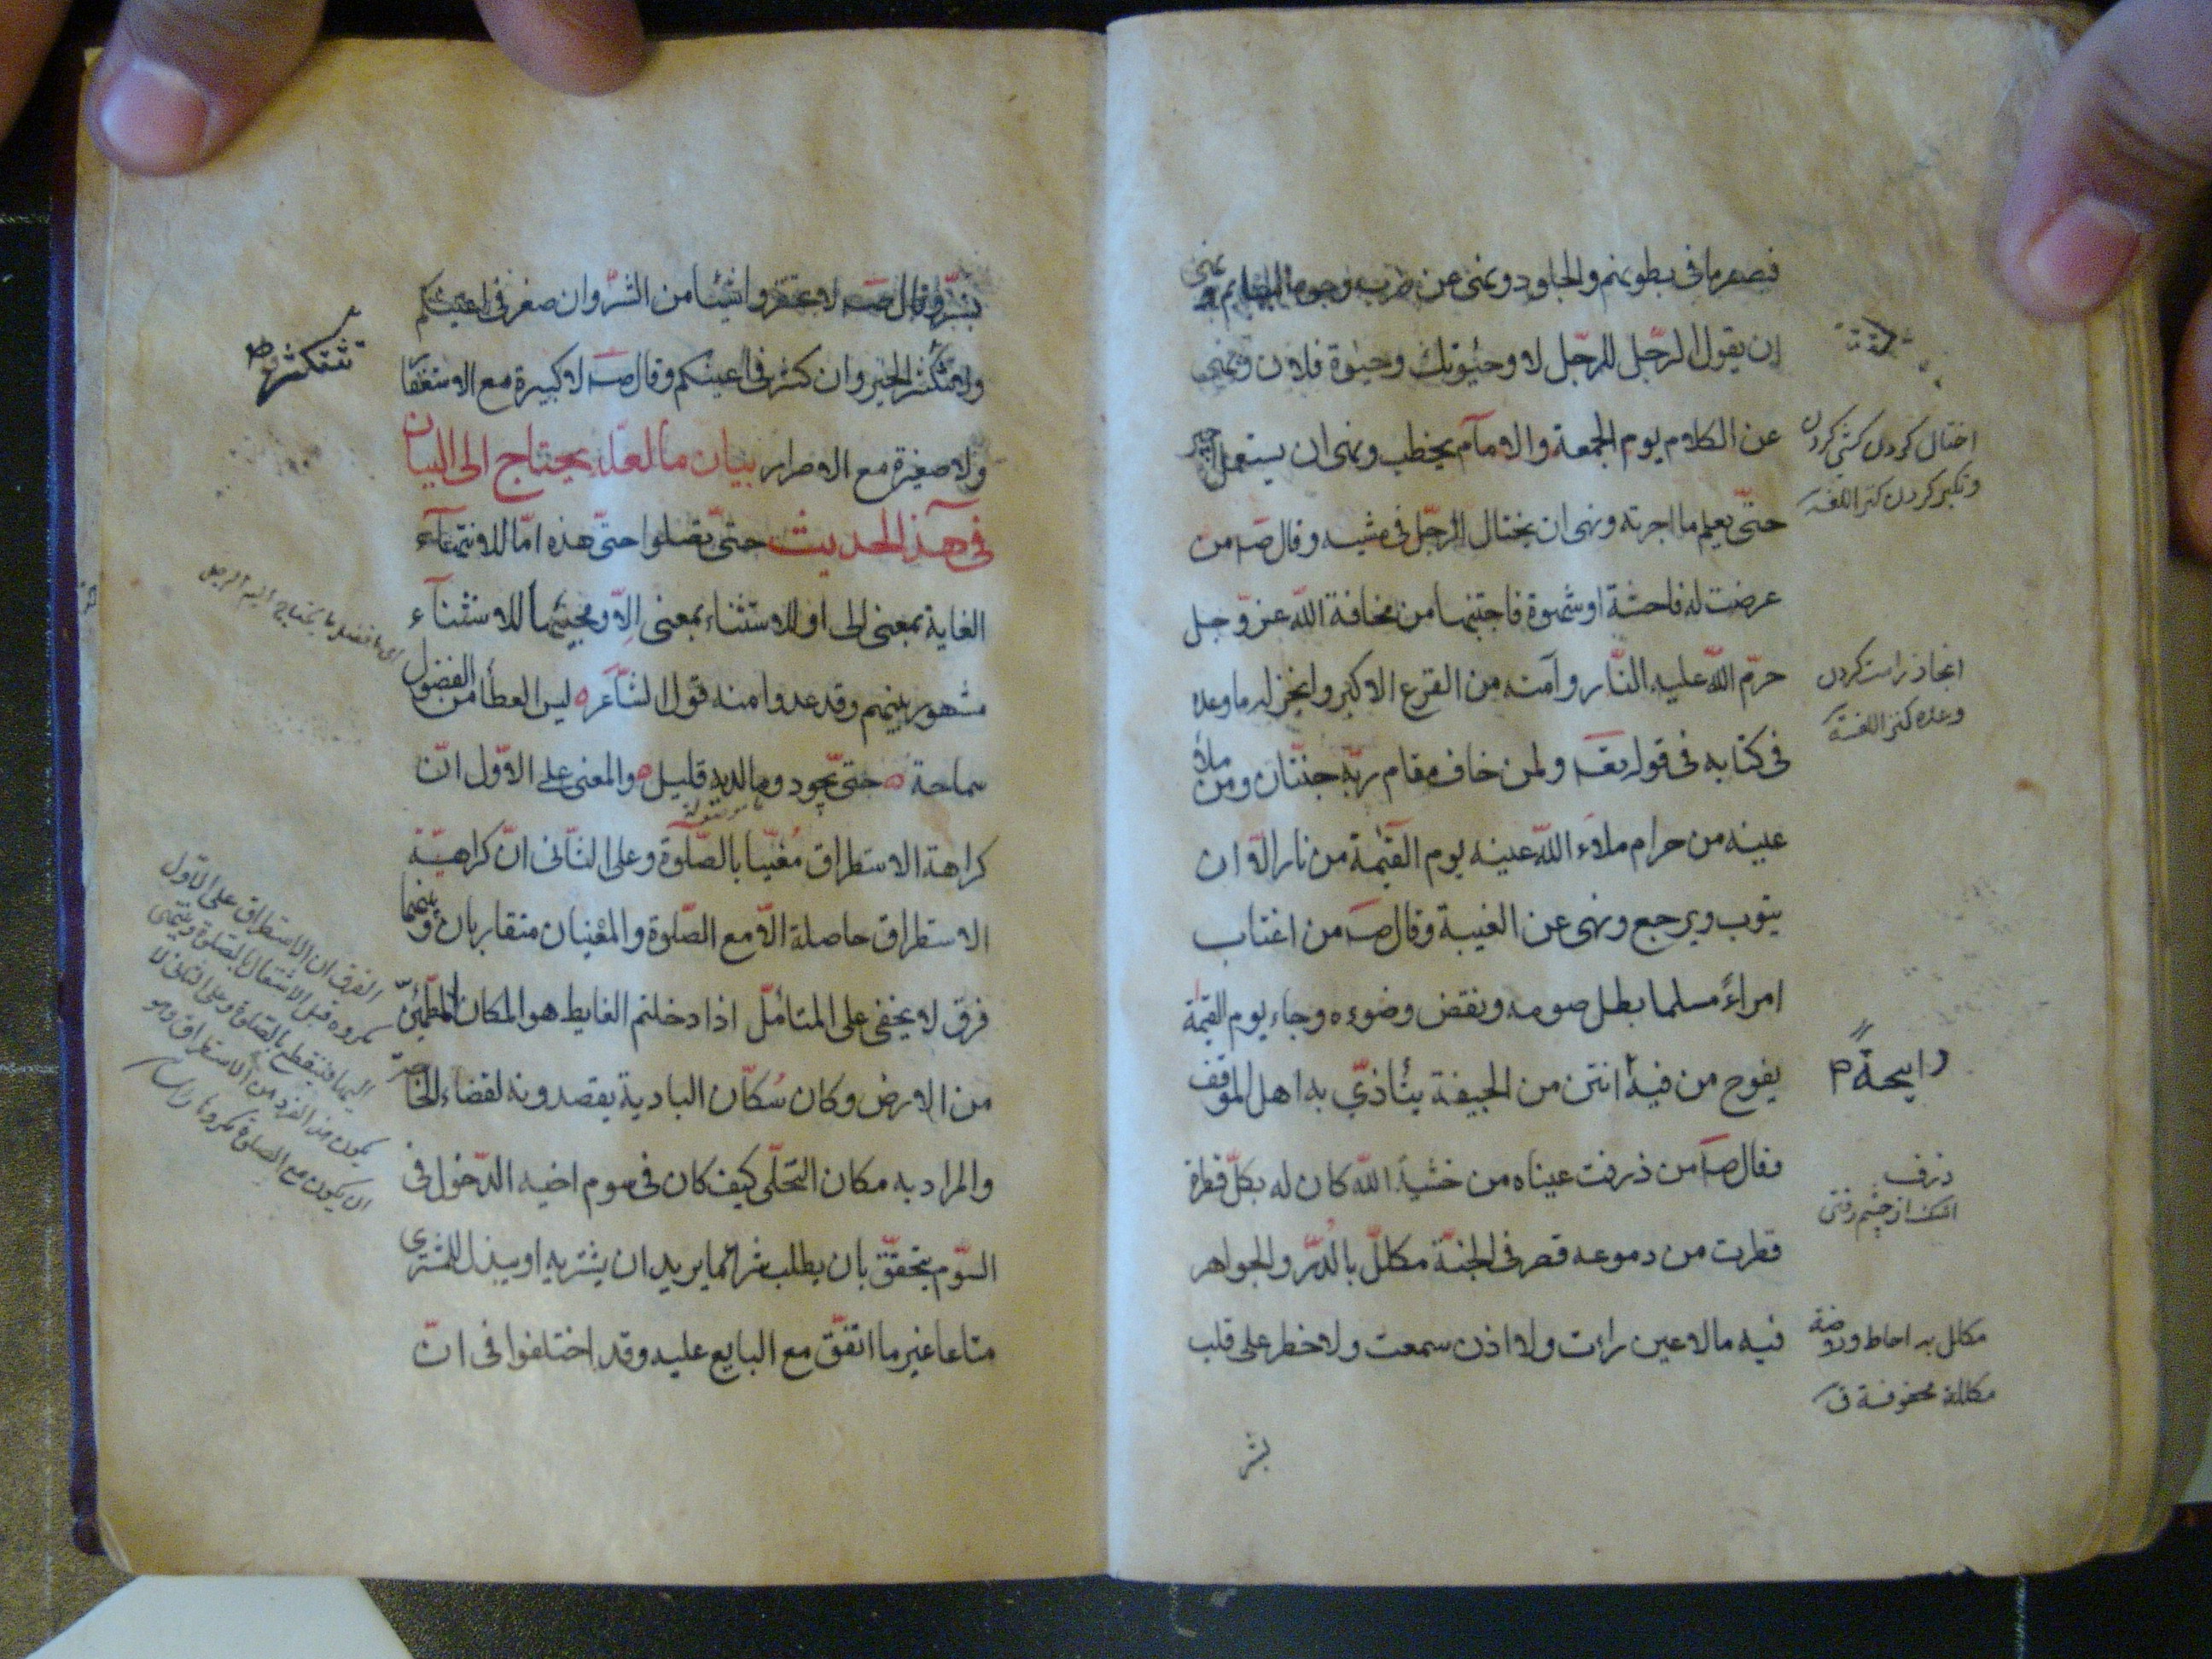 فيصهر ما في بطونهم والجلود ونهى عن ضرب وجوه البهايم ونهى
ان يقول الرّجل للرّجل لا وحيٰوتك وحيٰوة فلان ونهى
عن الكلام يوم الجمعة والامام يخطب ونهى ان يستعمل اجير
حتّى يعلم ما اجرته ونهى ان يختال الرّجل في مشيه وقال صَ من
عرضت له فاحشة او شهوة فاجتنبها من مخافة اللّه عزّ وجل
حرّم اللّه عليه النّار وآمنه من الفزع الاكبر وانجز له ما وعده
في كتابه في قوله تعَ ولمن خاف مقام ربّه جنّتان ومن ملأ
عينه من حرام ملاء اللّه عينه يوم القيٰمة من نار الّا ان
يتوب ويرجع ونهى عن الغيبة وقال صَ من اغتاب
امراءً مسلما بطل صومه ونقض وضوءه وجاء يوم القيٰمة
يفوح من فيه انتن من الجيفة يتأذّي به اهل الموقف
وقال صَ من ذرفت عيناه من خشية اللّه كان له بكلّ قطرة
قطرت من دموعه قصر في الجنّة مكللّ بالدُرّ والجواهر
فيه ما لا عين رات ولا اذن سمعت ولا خطر على قلب
بشر
اختال كردن كشى كردن
وتكبر كردن كنز اللغة
انجاز راست كردن
وعده كنز اللغة
رايحةً
ذرف
اشك از چشم رفتن
مكلل به احاط وروضة
مكللة محفوفة ق
بشر وقال صَ لا تحقروا شيئا من الشرّ وان صغر في اعينكم
ولا تكثر الخير وان كثر في اعينكم وقال صَ لا كبيرة مع الاستغفا
ولا صغيرة مع الاصرار بيان ما لعلّه يحتاج الى البيان
في هذا الحديث حتّى تصلوا حتّى هذه امّا للانتهاء
الغاية بمعنى الى او للاستثناء بمعنى الّا ومجيئها للاستثناء
مشهور بينهم وقد عدوا منه قول الشّاعر ليس العطأ من الفضول
سماحة حتّى تجود وما لديه قليل والمعنى على الاوّل انّ
كراهة الاستطراق مُغيّا بالصّلوة وعلى الثّاني انّ كراهيّة
الاستطراق حاصلة الّا مع الصّلوة والمعنيان متقاربان وبينهما
فرق لا يخفى على المتامّل اذا دخلتم الغايط هو المكان المطمئنّ
من الارض وكان سُكّان البادية يقصدونه لقضاء الحاجة
والمراد به مكان التخلّي كيف كان في سوم اخيه الدّخول في
السّوم يتحقّق بان يطلب شراء ما يريد ان يشتريه او يبذل للمشترى
متاعا غير ما اتفق مع البايع عليه وقد اختلفوا في انّ
تستكثر
اى ما فضل ما يحتاج اليه الرجل
الفرق ان الاستطراق على الاول
مكروه قبل الاشتغال بالصلوة وينتهى
اليها فينقطع بالصلوة وعلى الثانى لا
يكون هذا الفرد من الاستطراق وهو
ان يكون مع الصلوة مكروها